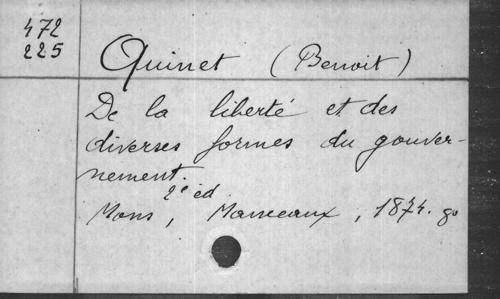 472
225
Quinet (Benoit)
De la liberté et des
diverses formes du gouver-
nement.
2e ed.
Mons, Manceaux, 1874. 8o